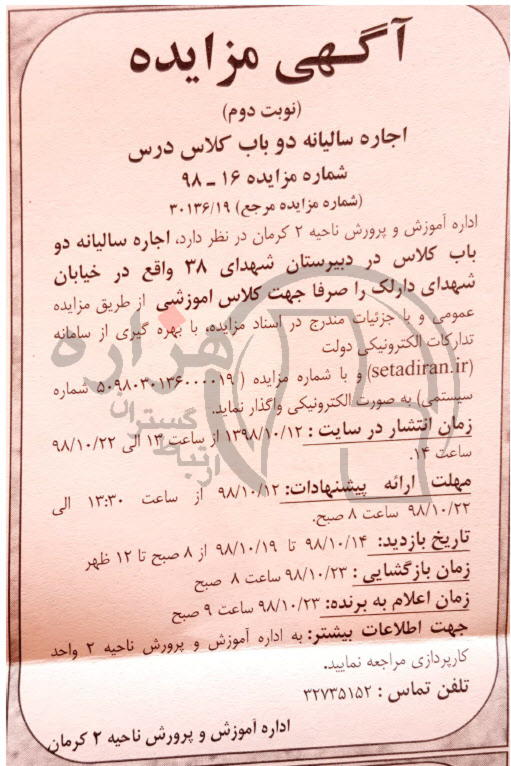 آگهی مزایده
(نوبت دوم)
اجاره سالیانه دو باب کلاس درس
شماره مزایده ۱۶ ـ ۹۸
(شماره مزایده مرجع) ۳۰۱۳۶/۱۹
اداره آموزش و پرورش ناحیه ۲ کرمان در نظر دارد، اجاره سالیانه دو
باب کلاس در دبیرستان شهدای ۳۸ واقع در خیابان
شهدای دارلک را صرفا جهت کلاس اموزشی از طریق مزایده
عمومی و با جزئیات مندرج در اسناد مزایده، با بهره گیری از سامانه
تدارکات الکترونیکی دولت
(setadiran.ir) و با شماره مزایده (۵۰۹۸۰۳۰۱۳۶۰۰۰۰۱۹ شماره
سیستمی) به صورت الکترونیکی واگذار نماید.
زمان انتشار در سایت : ۱۳۹۸/۱۰/۱۲ از ساعت ۱۳ الی ۹۸/۱۰/۲۲
ساعت ۱۴.
مهلت ارائه پیشنهادات: ۹۸/۱۰/۱۲ از ساعت ۱۳:۳۰ الی
۹۸/۱۰/۲۲ ساعت ۸ صبح.
تاریخ بازدید: ۹۸/۱۰/۱۴ تا ۹۸/۱۰/۱۹ از ۸ صبح تا ۱۲ ظهر
زمان بازگشایی : ۹۸/۱۰/۲۳ ساعت ۸ صبح
زمان اعلام به برنده: ۹۸/۱۰/۲۳ ساعت ۹ صبح
جهت اطلاعات بیشتر: به اداره آموزش و پرورش ناحیه ۲ واحد
کارپردازی مراجعه نمایید.
تلفن تماس : ۳۲۷۳۵۱۵۲
اداره آموزش و پرورش ناحیه ۲ کرمان
هزاره
گستران
ارتباط